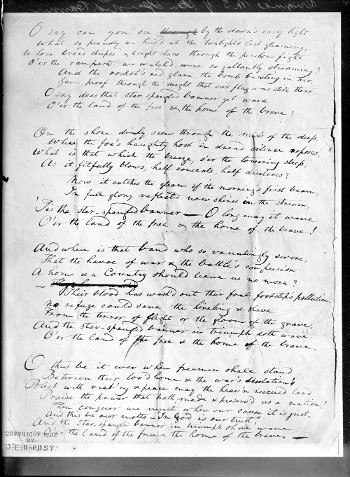 O say can you see by the dawn's early light
What so proudly we hail'd at the twilight's last gleaming,
Whose broad stripes & bright stars through the perilous fight
O'er the ramparts we watch'd, were so gallantly streaming?
And the rocket's red glare, the bomb bursting in air,
Gave proof through the night that our flag was still there
O say does that star-spangled banner yet wave
O'er the land of the free & the home of the brave?
On the shore dimly seen through the mists of the deep,
Where the foe's haughty host in dread silence reposes,
What is that which the breeze, o'er the towering steep,
As it fitfully blows, half conceals, half discloses?
Now it catches the gleam of the morning's first beam,
In full glory reflected now shines in the stream,
'Tis the star-spangled banner — O long may it wave
O'er the land of the free & the home of the brave!
And where is that band who so vauntingly swore,
That the havoc of war & the battle's confusion
A home & a Country should leave us no more?
Their blood has wash'd out their foul footstep's pollution
No refuge could save the hireling & slave
From the terror of flight or the gloom of the grave,
And the star-spangled banner in triumph doth wave
O'er the land of the free & the home of the brave.
O thus be it ever when freemen shall stand
Between their lov'd home & the war's desolation!
Blest with vict'ry & peace may the heav'n rescued land
Praise the power that hath made & preserv'd us a nation!
Then conquer we must, when our cause it is just,
And this be our motto — "In God is our trust,"
And the star-spangled banner in triumph shall wave
O'er the land of the free & the home of the brave. —
COPYRIGHT
BY